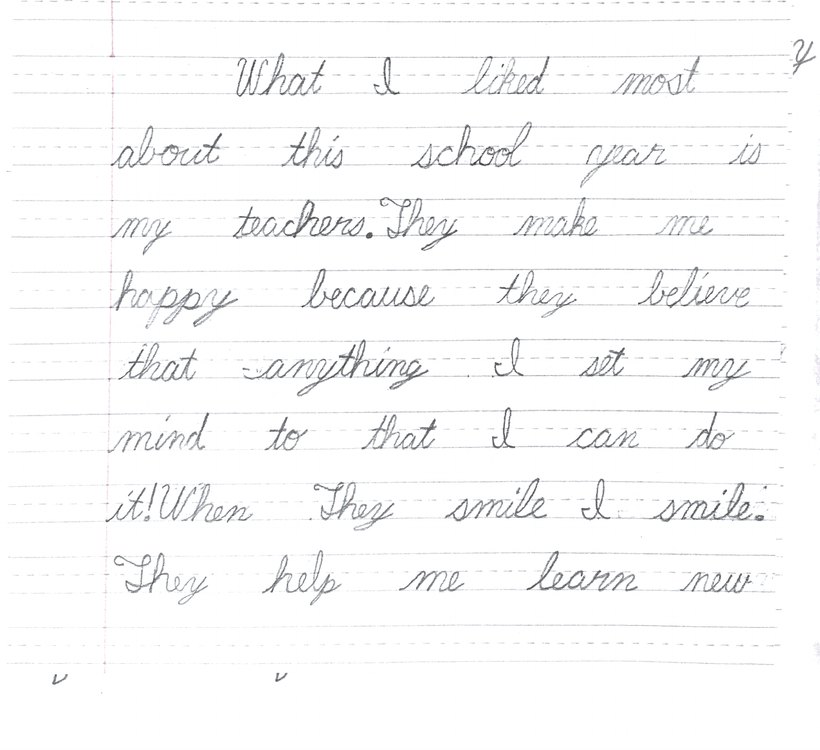 What I liked most
about this school year is
my teachers. They make me
happy because they believe
that anything I set my
mind to that I can do
it! When They smile I smile.
They help me learn new